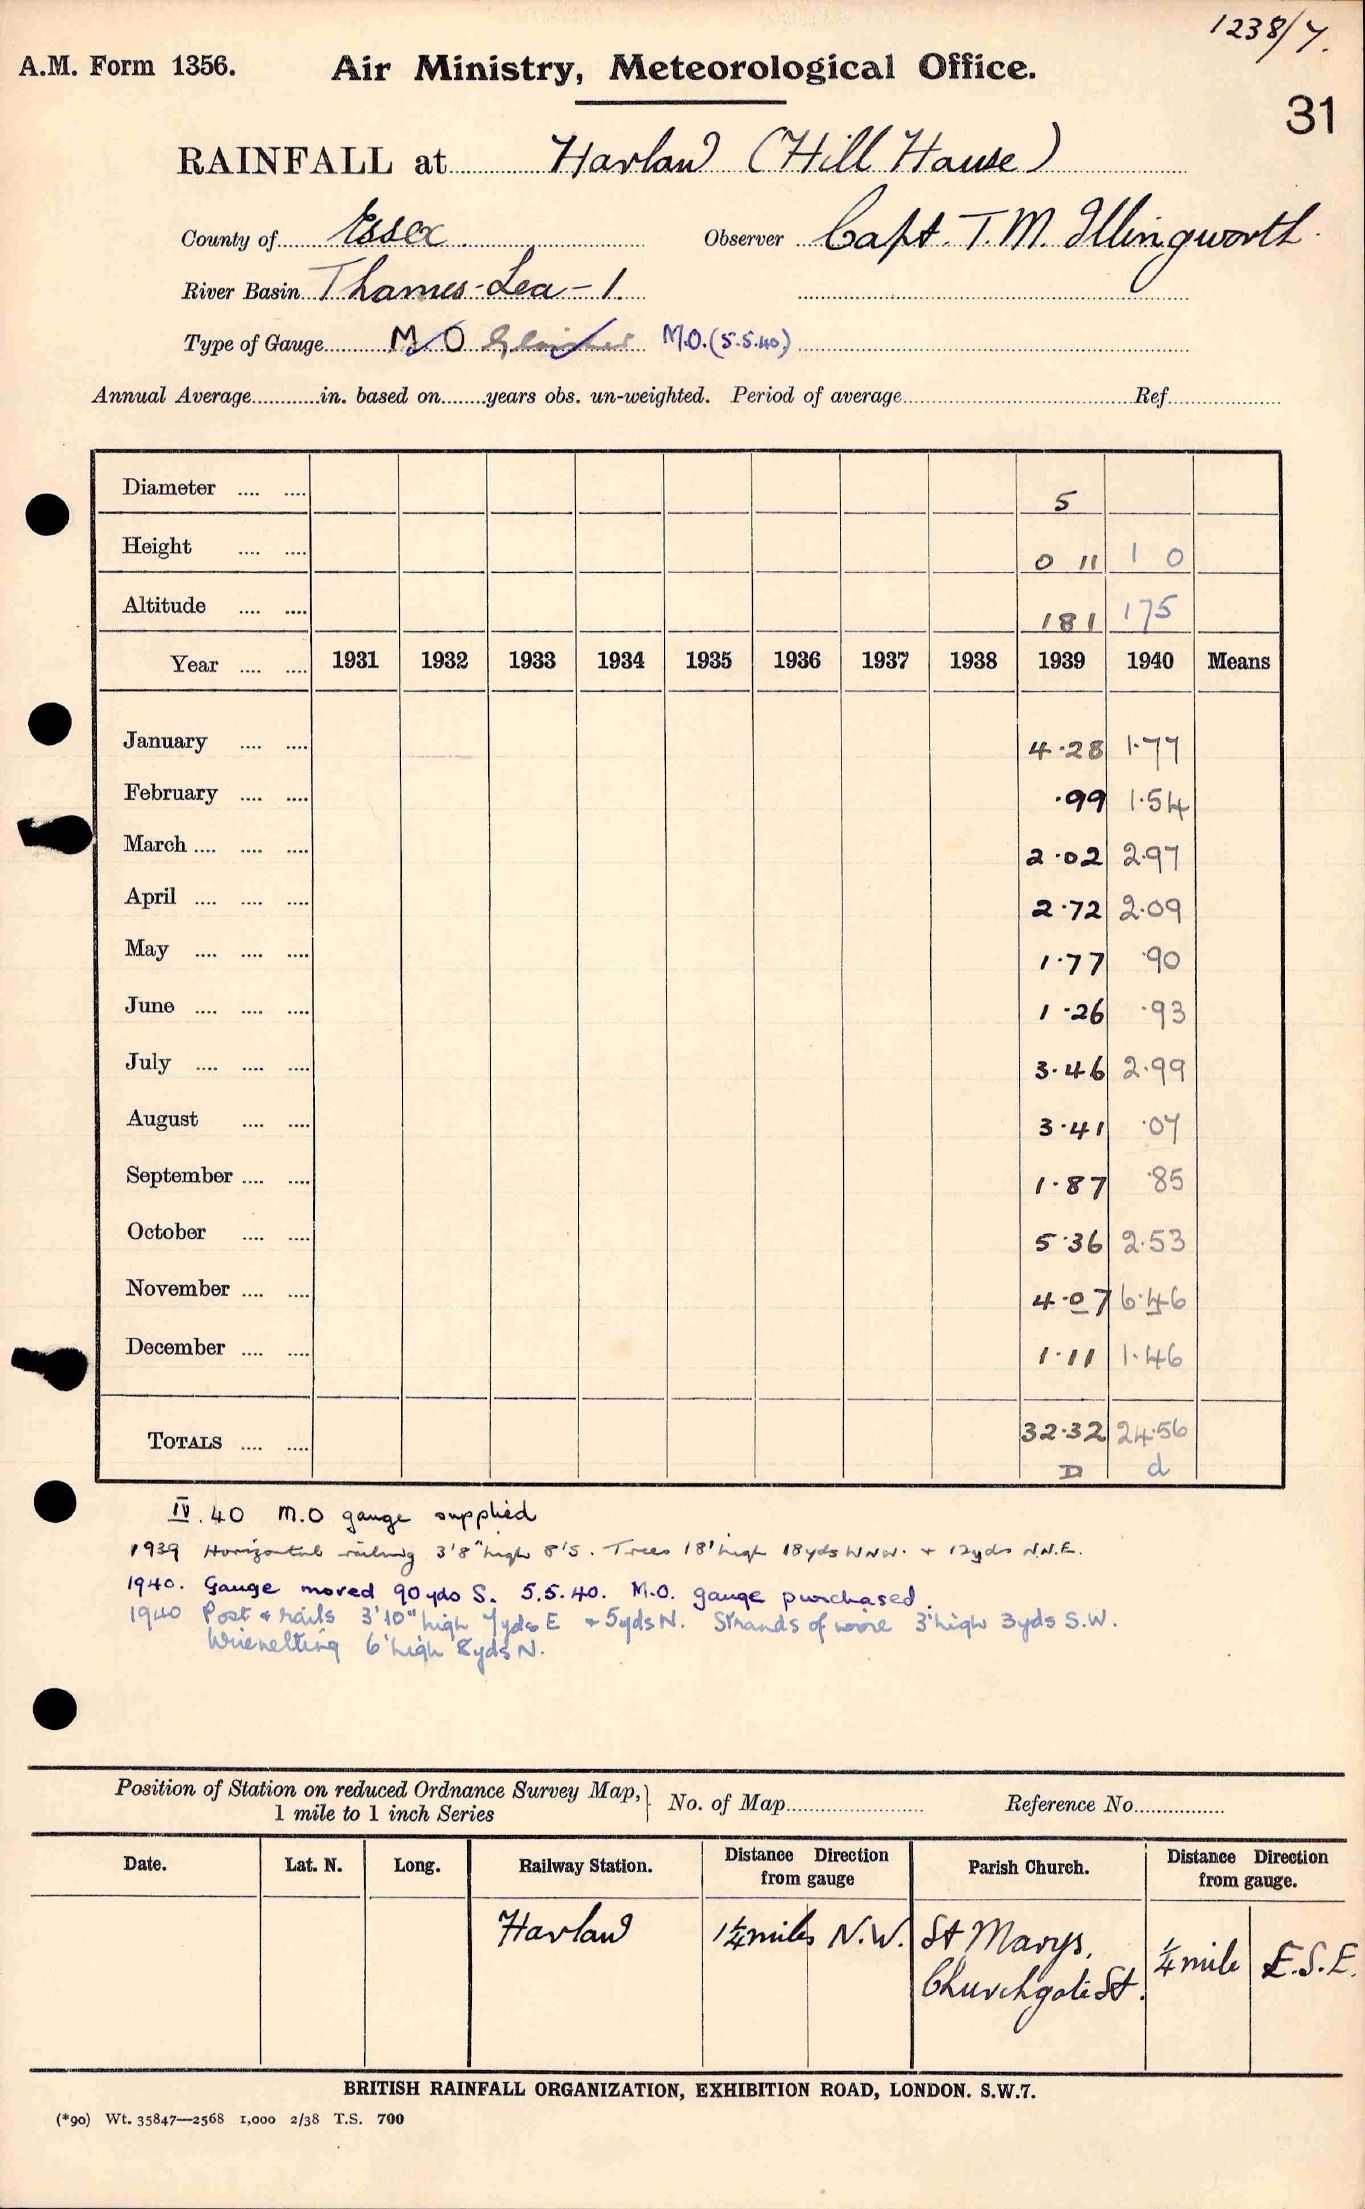 1238/7.
A.M. Form 1356. Air Ministry, Meteorological Office.
31
RAINFALL at Harlow (Hill House)
County of Essex Observer Capt. T. M. Illingworth.
River Basin Thames-Lea-1.
Type of Gauge M O Glaisher M.O. (5.5.40)
Annual Average in. based on years obs. un-weighted. Period of average Ref
Diameter 5
Height 0 11 1 0
Altitude 181 175
Year 1931 1932 1933 1934 1935 1936 1937 1938 1939 1940 Means
January 4.28 1.77
February .99 1.54
March 2.02 2.97
April 2.72 2.09
May 1.77 .90
June 1.26 .93
July 3.46 2.99
August 3.41 .07
September 1.87 .85
October 5.36 2.53
November 4.07 6.46
December 1.11 1.46
TOTALS 32.32 24.56
D d
IV.40 M.O gauge supplied
1939 Horizontal railing 3'8" high 8'S. Trees 18' high 18yds WNW. + 12yds N.N.E.
1940. Gauge moved 90 yds S. 5.5.40. M.O. gauge purchased.
1940 Post & rails 3'10" high 7yds E + 5yds N. Strands of wire 3' high 3yds S.W.
Wirenetting 6' high 8yds N.
Position of Station on reduced Ordnance Survey Map, } No. of Map Reference No.
1 mile to 1 inch Series
Date. Lat. N. Long. Railway Station. Distance Direction from gauge Parish Church. Distance Direction from gauge.
Harlow 1¼ miles N.W. St Marys, ¼ mile E.S.E.
Churchgate St.
BRITISH RAINFALL ORGANIZATION, EXHIBITION ROAD, LONDON. S.W.7.
(*90) Wt. 35847—2568 1,000 2/38 T.S. 700